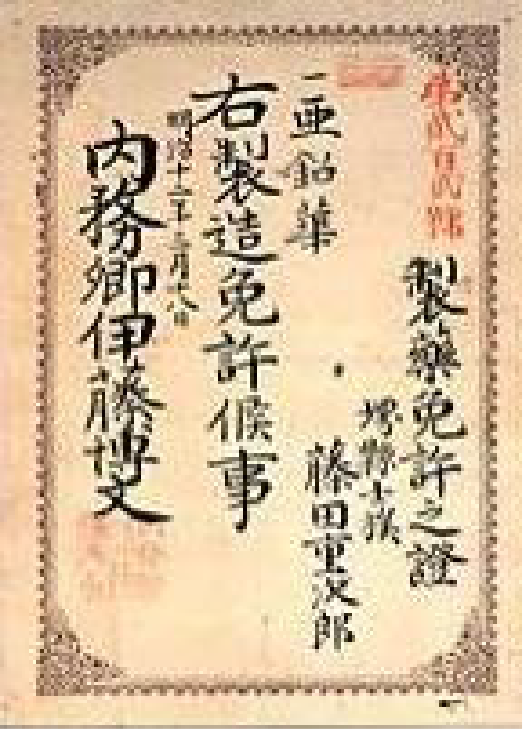 製藥免許之證
堺縣士族
藤田重次郎
一亜鉛華
右製造免許候事
明治十二年十二月十八日
内務卿伊藤博文